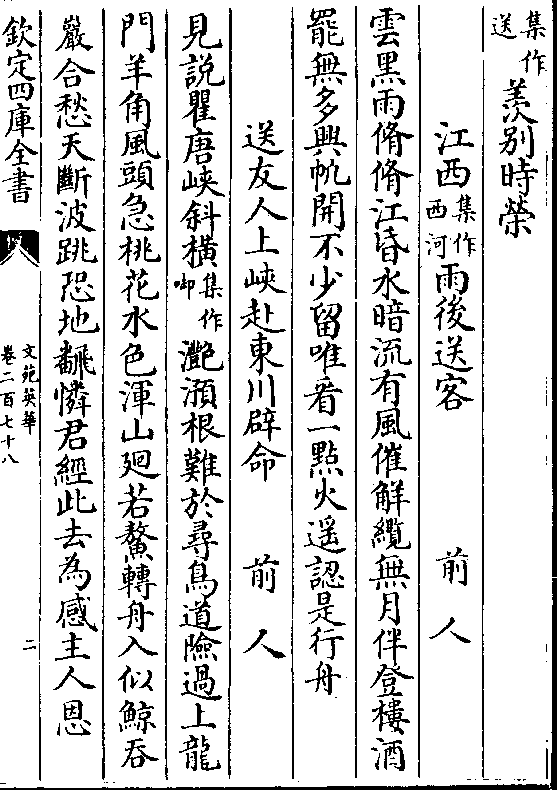 集作送羡别時榮
江西集作西河雨後送客　前人
雲黒雨翛翛江昏水暗流有風催解纜無月伴登樓酒
罷無多興帆開不少留唯看一點火遥認是行舟
送友人上峽赴東川辟命　前人
見説瞿唐峽斜橫集作啣灎澦根難於尋鳥道險過上龍
門羊角風頭急桃花水色渾山廻若鰲轉舟入似鯨吞
巖合愁天斷波跳恐地飜憐君經此去為感主人恩
欽定四庫全書
文苑英華
卷二百七十八
二